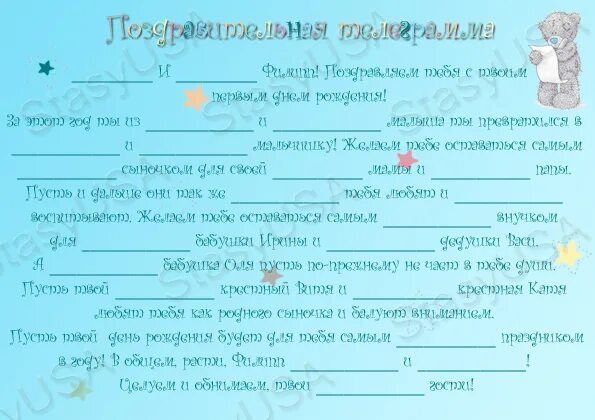 Поздравительная телеграмма
__________ И __________ Филипп! Поздравляем тебя с твоим
первым днем рождения!
За этот год ты из _____________ и _____________ малыша ты превратился в
_____________ и _____________ мальчишку! Желаем тебе оставаться самым
_____________ сыночком для своей _____________ мамы и _____________ папы.
Пусть и дальше они так же _____________ тебя любят и _____________
воспитывают. Желаем тебе оставаться самым _____________ внучком
для _____________ бабушки Ирины и _____________ дедушки Васи.
А _____________ бабушка Оля пусть по-прежнему не чает в тебе души.
Пусть твой _____________ крестный Витя и _____________ крестная Катя
любят тебя как родного сыночка и балуют вниманием.
Пусть твой день рождения будет для тебя самым _____________ праздником
в году! В общем, расти, Филипп _____________ и _____________!
Целуем и обнимаем, твои _____________ гости!
StasyUSA